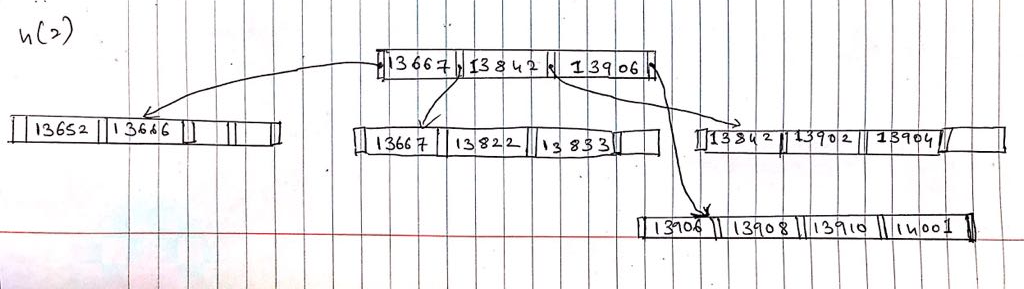 4(2)
13667 13842 13906
13652 13666
13667 13822 13833
13842 13902 13904
13906 13908 13910 14001